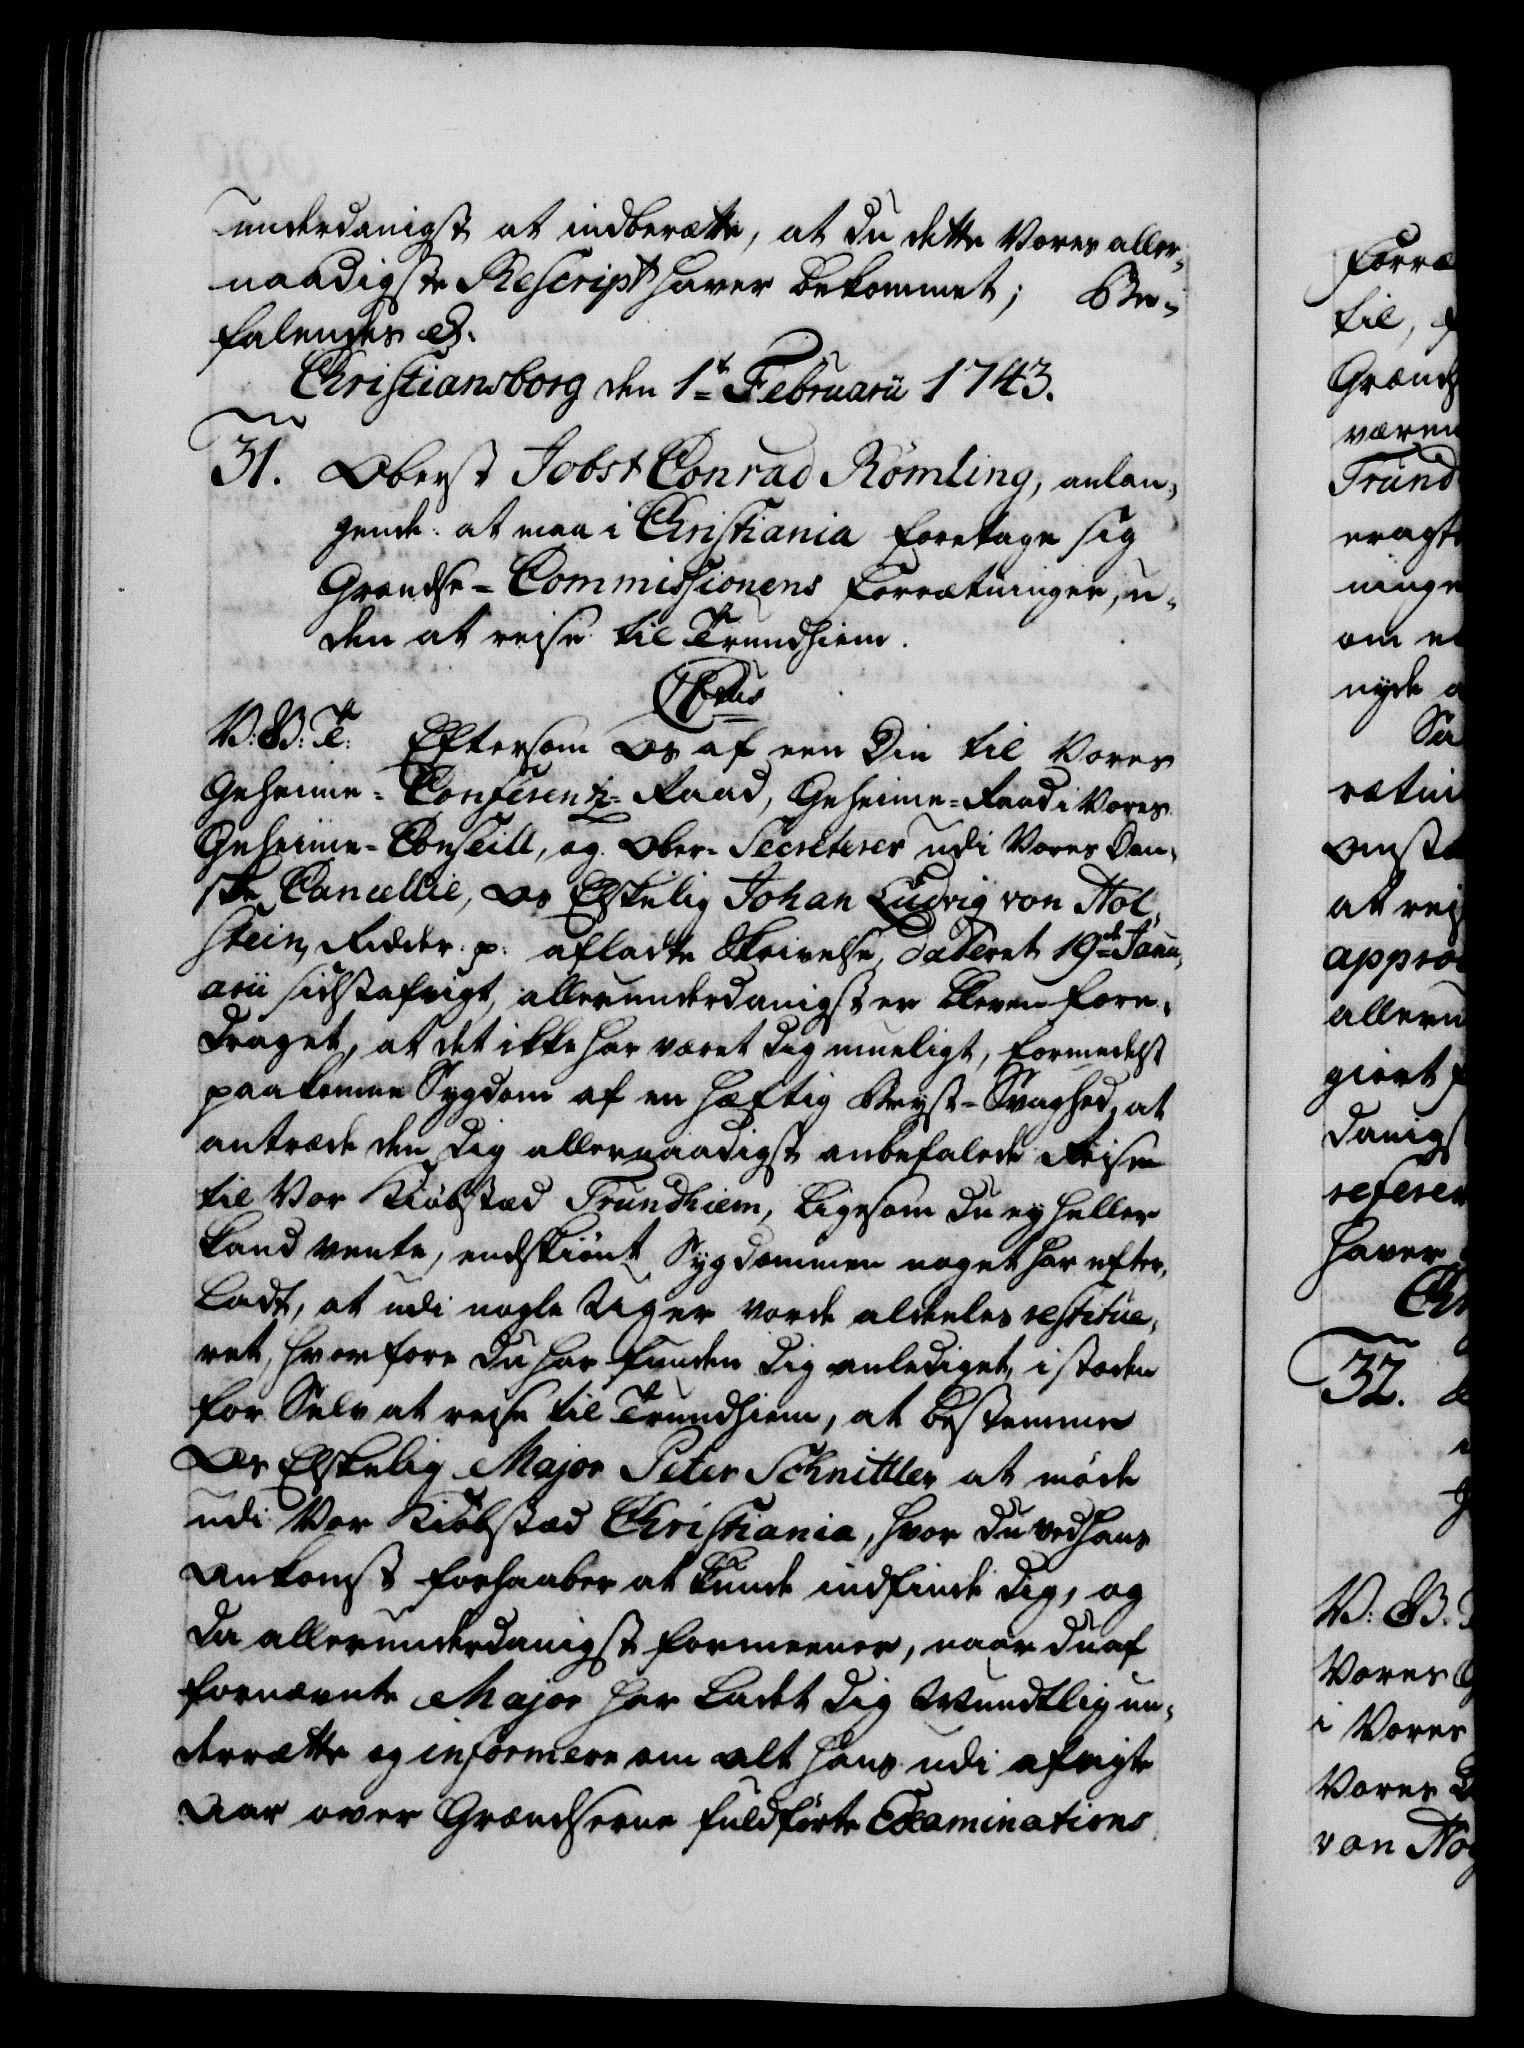 underdanigst at indberætte, at du dette Vores aller-
naadigste Rescript haver bekommet; Be-
falendes &.
Christiansborg den 1t Februarii 1743.
31. Oberst Jobst Conrad Römling, anlan-
gende: at maa i Christiania foretage sig
Grændse-Commissionens Forrætninger, u-
den at reise til Trundhiem.
C 6tus
V: G: T: Eftersom Os af een Din til Vores
Geheime-Conferentz-Raad, Geheime-Raad i Vores
Geheime-Conseill, og Ober-Secreterer udi Vores Dan-
ske Cancellie, Os Elskelig Johan Ludvig von Hol-
stein, Ridder. p: afladte Skrivelse, dateret 19de Janu-
arii sidstafvigt, allerunderdanigst er bleven fore-
draget, at det ikke har været Dig mueligt, formedelst
paakomne Sygdom af en hæftig Bryst-Svaghed, at
antræde den Dig allernaadigst anbefalede Reise
til Vor Kiøbstæd Trundhiem, ligesom Du ey heller
kand vente, endskiønt Sygdommen noget har efter-
ladt, at udi nogle Uger vorde aldeeles restitue-
ret, hvorfore Du har funden Dig anlediget, i stæden
for Selv at reise til Trundhiem, at bestemme
Os Elskelig Major Peter Schnittler at møde
udi Vor Kiøbstæd Christiania, hvor Du ved hans
Ankomst forhaaber at kunde indfinde Dig, og
Da allerunderdanigst formeener, naar Du af
fornævnte Major har ladet Dig Mundtlig un-
derrætte og informere om alt hans udi afvigte
Aar over Grændserne fuldførte Examinations
Forræ
til, 
Grænds
være
Trund
eragt
ninge
om 
nyde 
Sa
rætni
Omst
at rej
appro
alleru
giort 
danigs
referer
haver
Chr
32.
V: G: T
Vores
i Vores
Vores
von Hol